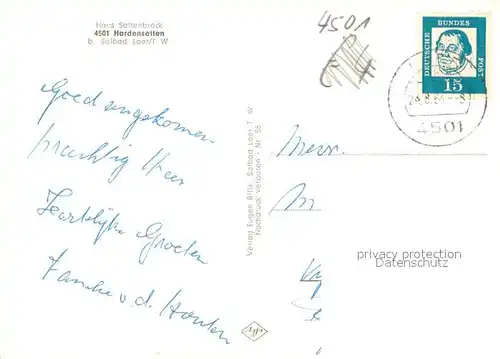 Haus Sattenbrock
4501 Hardensetten
b. Solbad Laer/T W
4501
DEUTSCHE BUNDES POST
15
4501
Goed angekomen
prachtig Huis
Hartelijke Groeten
Familie v. d. Houten
Verlag Eugen Bitk, Solbad Laer T. W
Nachdruck verboten - Nr. 55
Mevr.
privacy protection
Datenschutz